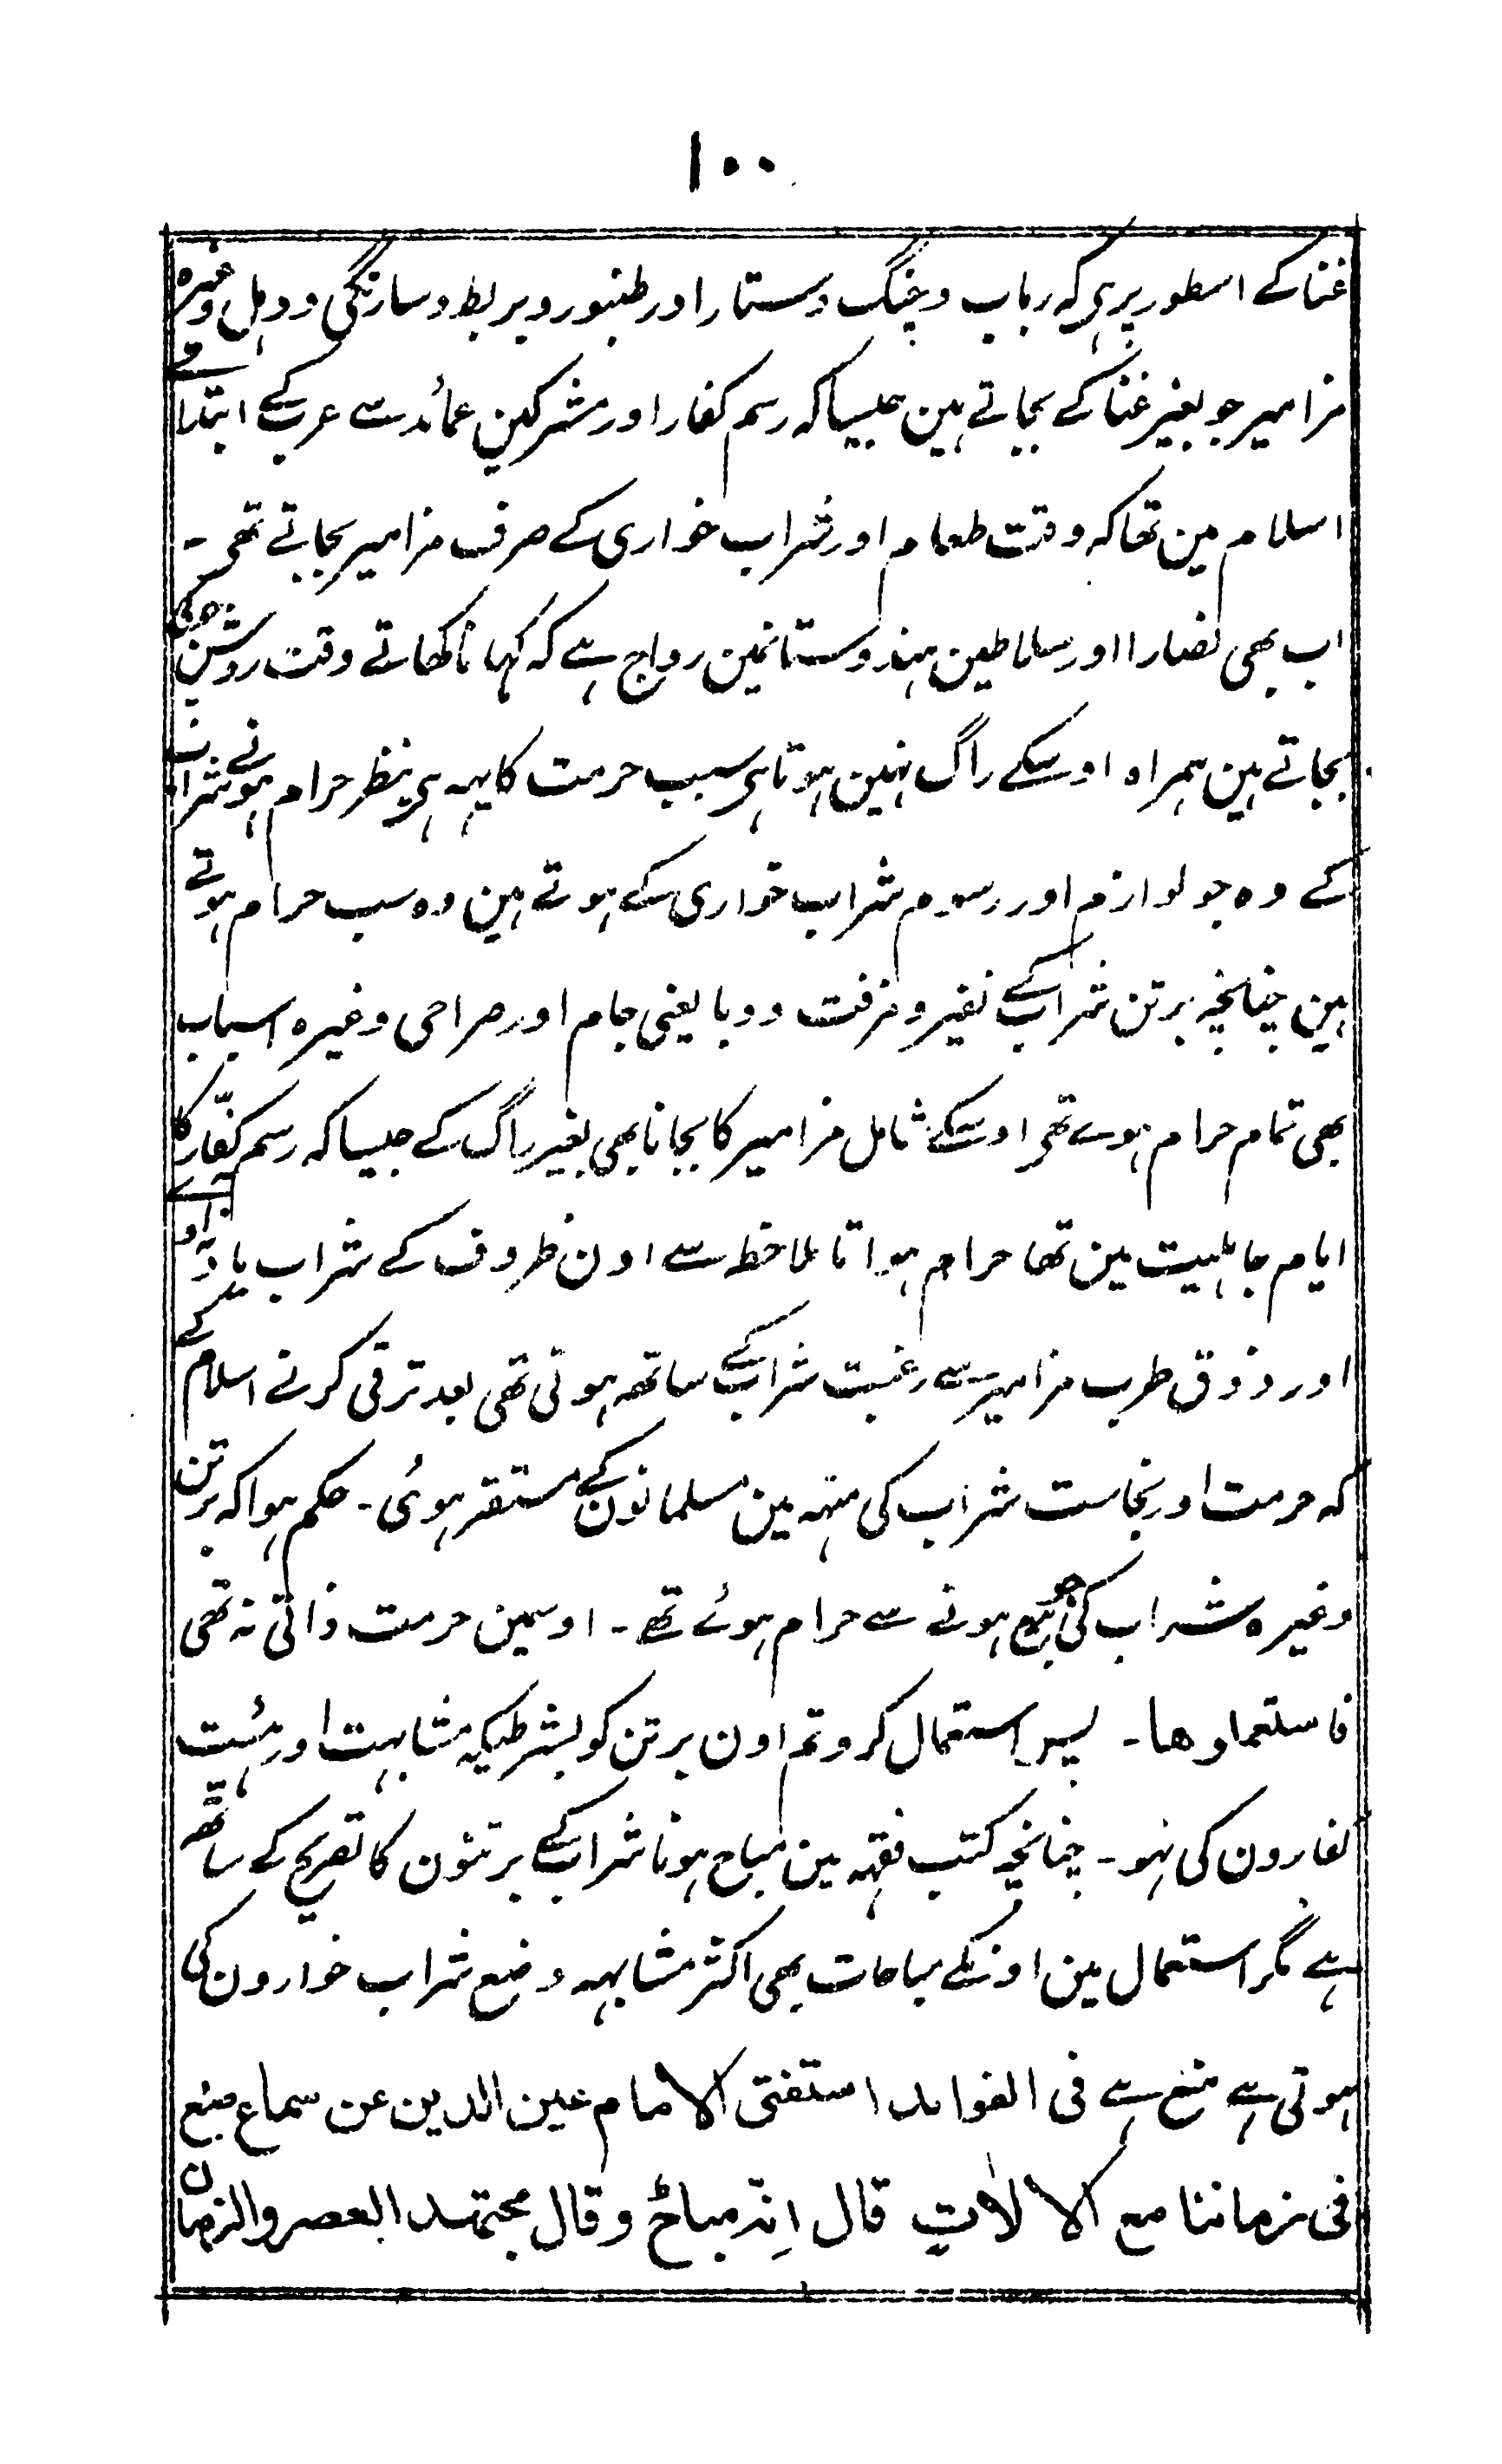 ۱۰۰
غنا کے اسطور پر ہی کہ رباب و چنگ و ستار اور طنبور و بربط و سارنگی و دہل وغیرہ
مزامیر جو بغیر غنا کے بجاتے ہین جیسا کہ رسم کفار اور مشرکین عمائد سے عرب کے ابتدا
اسلام مین تھا کہ وقت طعام اور شراب خواری کے صرف مزامیر بجاتے تھی ۔
اب بھی نصارا اور سلاطین ہندوستانمین رواج ہے کہ کہانا کھاتے وقت روشن چوکی
بجاتے ہین ہمراہ اوسکے راگ نہین ہوتا ہی سبب حرمت کا یہہ ہی بنظر حرام ہونے شراب
کے وہ جو لوازم اور رسوم شراب خواری کے ہوتے ہین وہ سب حرام ہوتے
ہین چنانچہ برتن شراب کے نقیر و مزفت و دبا یعنی جام اور صراحی وغیرہ اسباب
بھی تمام حرام ہوے تھی اوسکے شامل مزامیر کا بجانا بھی بغیر راگ کے جیسا کہ رسم کفّار کا
ایام جاہلیت مین تھا حرام ہوا تا ملاحظہ سے اون ظروف کے شراب یاد آوے
اور ذوق طرب مزامیر سے رغبت شراب کے ساتھہ ہوتی تھی بعد ترقی کرنے اسلام کے
کہ حرمت اور نجاست شراب کی منہہ مین مسلمانون کے مستقر ہوئی ۔ حکم ہوا کہ برتن
وغیرہ شراب کی جو بتبع ہونے سے حرام ہوئے تھے ۔ اوسمین حرمت ذاتی نہ تھی
فاستعملوها ۔ پس استعمال کرو تم اون برتن کو بشرطیکہ مشابہت اور ہئیت
کفارون کی نہو ۔ چنانچہ کتب فقہہ مین مباح ہونا شراب کے برتنون کا تصریح کے ساتھہ
ہے مگر استعمال مین اونکے مباحات بھی اکثر مشابہہ وضع شراب خوارون کی
ہوتی ہے منع ہے فی الفوائد استفتی الامام عین الدین عن سماع صنع
فی زماننا مع الالات قال اِنّہ مباحٌ وقال مجتهد العصر والزمان